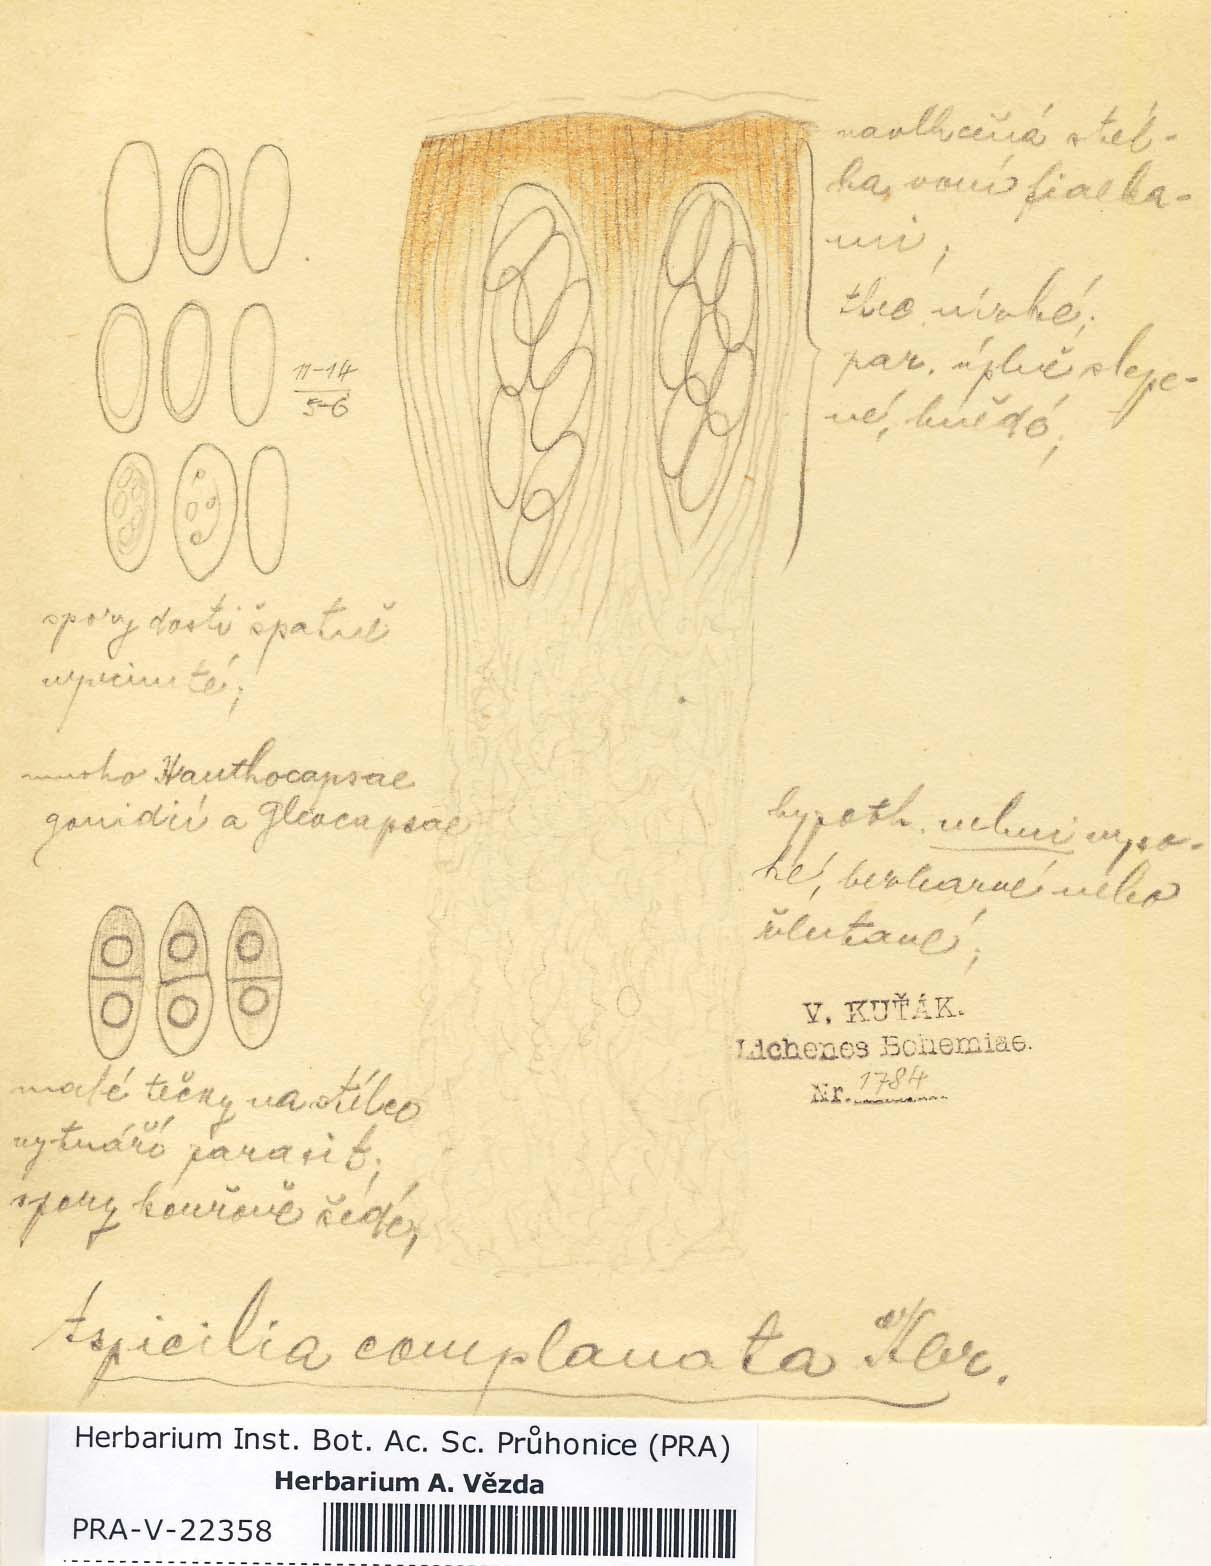 navlhčená stél-
ka voní fialka-
mi;
thec. nízké;
par. úplně slepe-
né, hnědé;
11-14
5-6
spory dosti špatně
vyvinuté;
mnoho Xanthocapsae
gonidií a Gleocapsae
hypoth. velmi vyso-
ké, bezbarvé nebo
žlutavé;
V. KUŤÁK.
Lichenes Bohemiae.
Nr. 1784
malé tečky na stélce
vytváří parasit;
spory kouřově šedé,
Aspicilia complanata Kbr.
Herbarium Inst. Bot. Ac. Sc. Průhonice (PRA)
Herbarium A. Vězda
PRA-V-22358